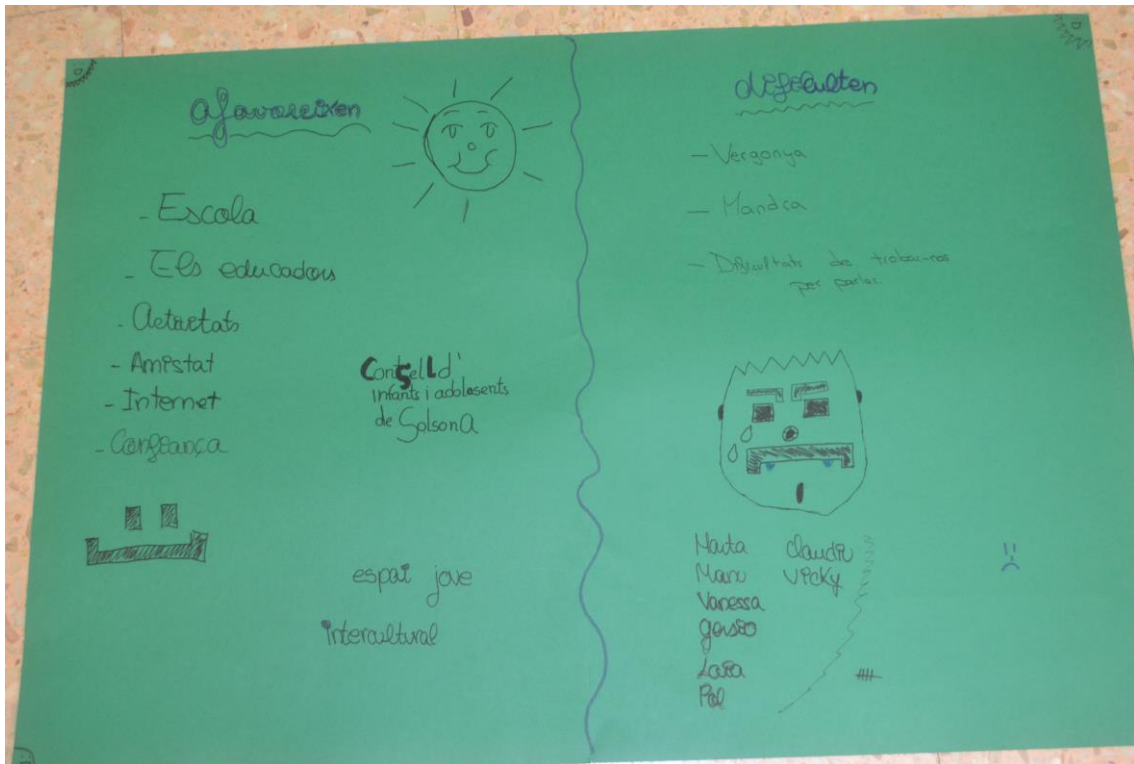 afavoreixen
- Escola
- Els educadors
- Activitats
- Amistat
- Internet
- Confiança
Consell d'
infants i adolesents
de Solsona
espai jove
intercultural
dificulten
- Vergonya
- Mandra
- Dificultats de trobar-nos
per parlar.
Marta Claudiu
Manu Vicky
Vanessa
Laia
Pol